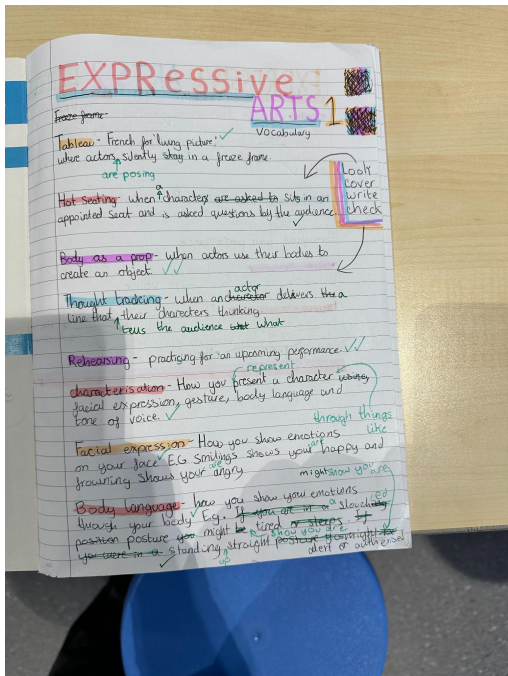 EXPRESSIVE
ARTS 1
Freeze frame
Vocabulary
Tableau - French for 'living picture'
where actors silently stay in a freeze frame.
are posing
Look
cover
write
check
Hot Seating - when a characters are asked to sits in an
appointed seat and is asked questions by the audience
Body as a prop - when actors use their bodies to
create an object.
Thought tracking - when an character actor delivers the a
line that their characters thinking
tells the audience what what
Rehearsing - practicing for an upcoming performance.
represent
characterisation - How you present a character
facial expression, gesture, body language and
tone of voice.
through things
like
Facial expression - How you show emotions
on your face E.G smilings shows your happy and
are
frowning shows your angry
might show you are
Body Language - how you show your emotions
through your body E.g. If you are in a slouched
position posture you might be tired or sleepy. If
show you are
you were in a standing straight posture you might be
up
alert or